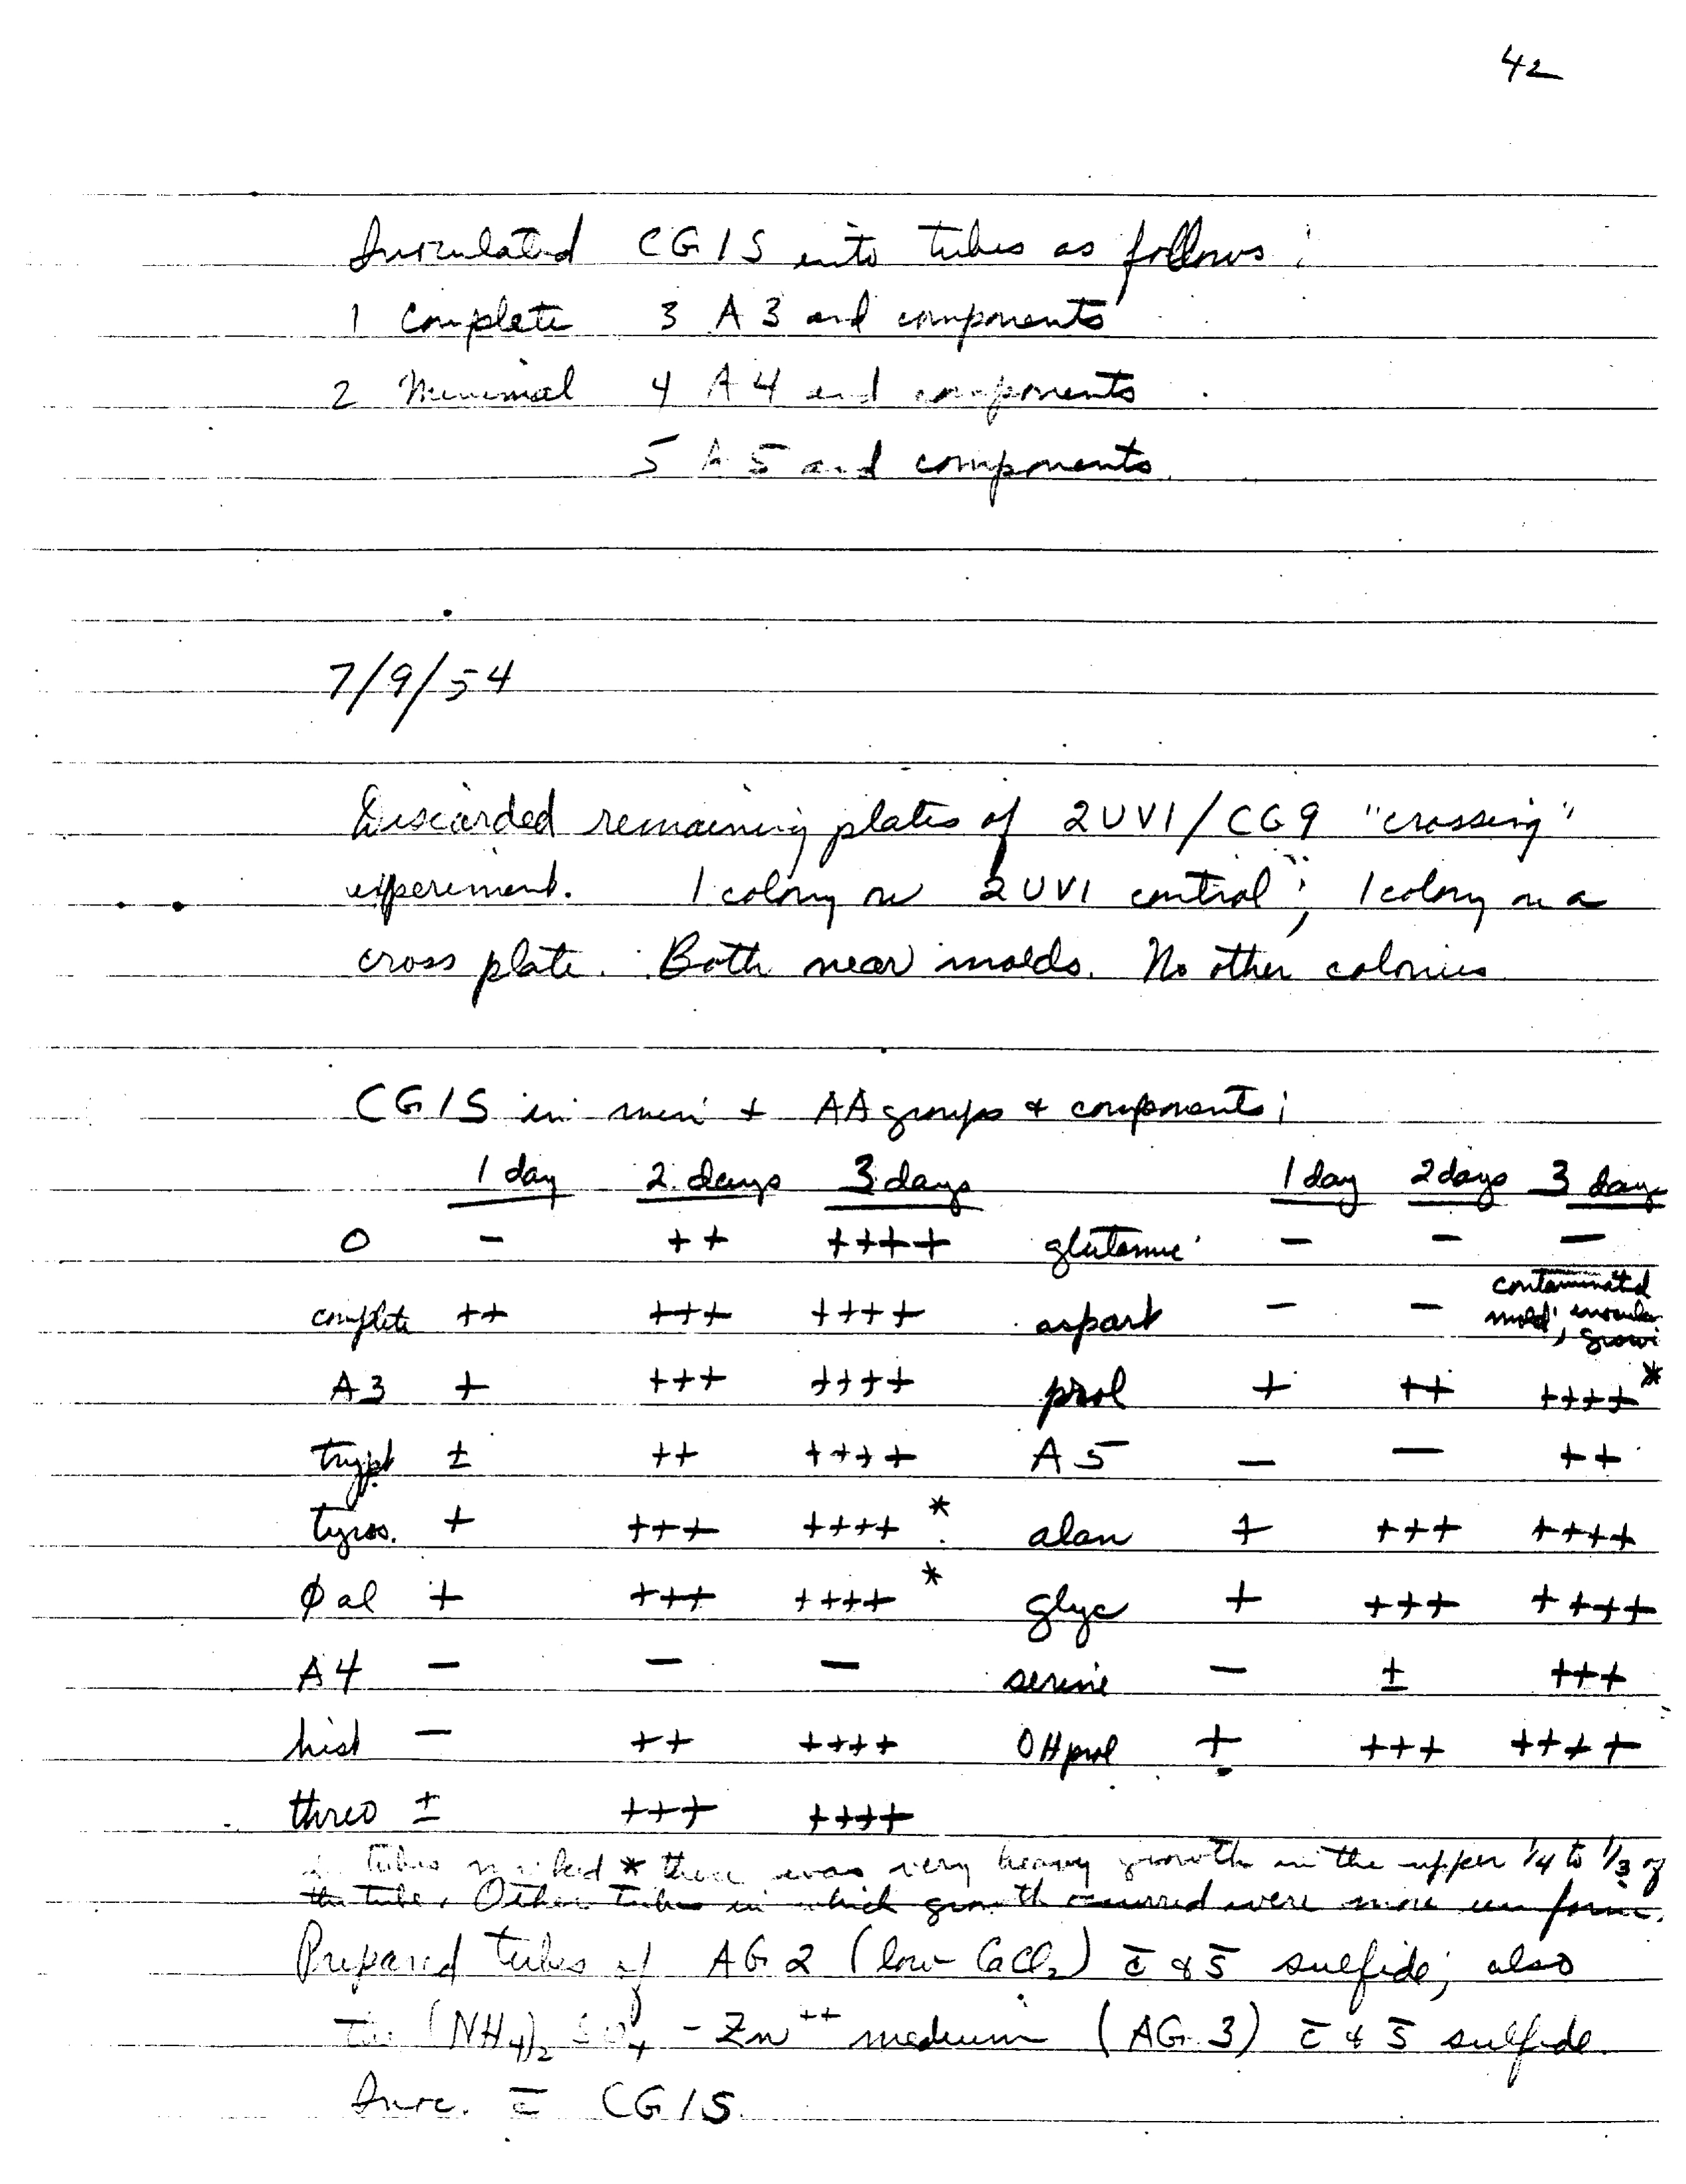 42
Inoculated CG1S into tubes as follows:
1 Complete 3 A3 and components
2 Minimal 4 A4 and components
5 A5 and components.
7/9/54
Discarded remaining plates of 2UV1/CG9 "crossing"
experiment. 1 colony on 2UV1 control"; 1 colony on a
cross plate. Both near molds. No other colonies.
CG1S in min + AA groups & components;
1 day 2 days 3 days 1 day 2 days 3 days
O - ++ ++++ glutamic - - -
complete ++ +++ ++++ aspart - - contaminated
mold;
A3 + +++ ++++ prol + ++ ++++*
trypt ± ++ ++++ A5 - - ++
tyros. + +++ ++++ * alan + +++ ++++
φal + +++ ++++ * glyc + +++ ++++
A4 - - - serine - ± +++
hist - ++ ++++ OHprol + +++ ++++
threo ± +++ ++++
In tubes marked * there was very heavy growth in the upper 1/4 to 1/3 of
the tube. Other tubes in which growth occurred were more uniform.
Prepared tubes of AG2 (low CaCl₂) c̄ & s̄ sulfide; also
the (NH₄)₂SO₄ - Zn⁺⁺ medium (AG3) c̄ & s̄ sulfide.
Inoc. c̄ CG1S.